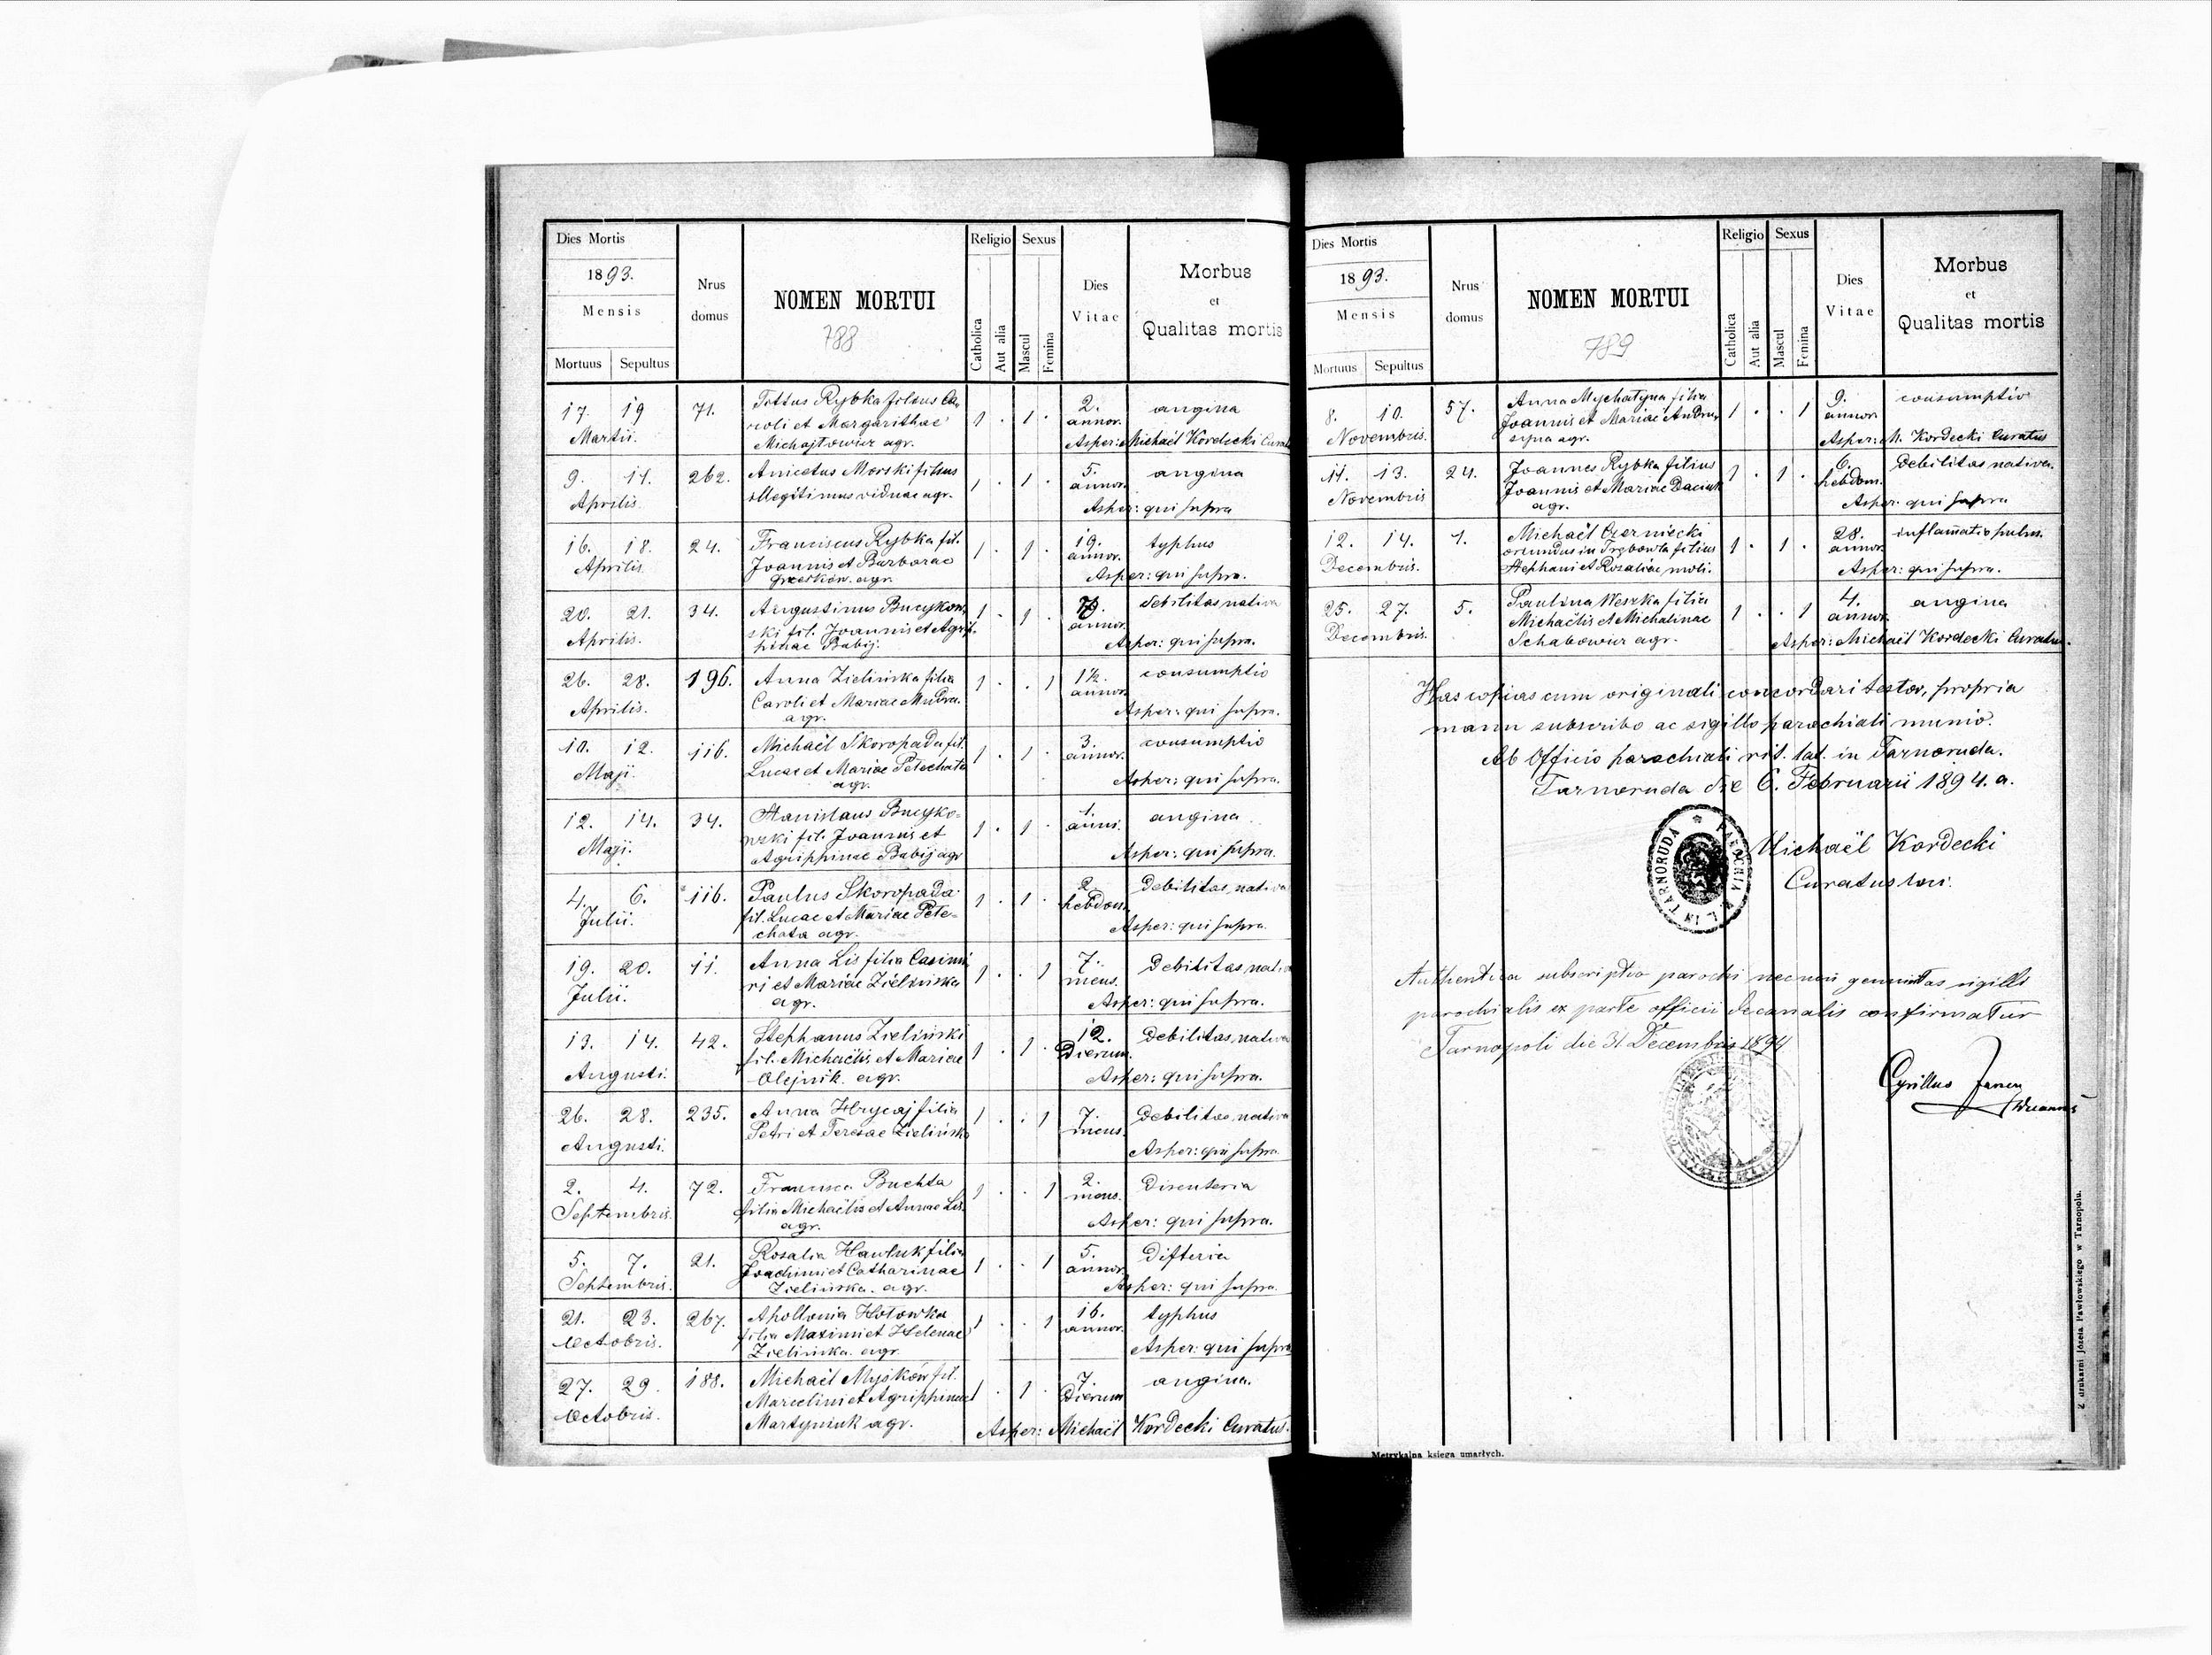 Dies Mortis
1893.
Mensis
Mortuus Sepultus
Nrus domus
NOMEN MORTUI
788
Religio
Catholica
Aut alia
Sexus
Mascul
Femina
Dies Vitae
Morbus
et
Qualitas mortis
17. 19 71. Tittus Rybka filius Ca 1 . 1 . 2. angina
Martii. roli et Margarithae annor.
Michajłowicz agr. Asper: Michaël Kordecki Curat
9. 11. 262. Anicetus Morski filius 1 . 1 . 5. angina
Aprilis illegitimus viduae agr. annor.
Asper: qui supra
16. 18. 24. Franciscus Rybka fil. 1 . 1 . 19. typhus
Aprilis Joannis et Barbarae annor.
agr. Asper: qui supra.
20. 21. 34. Augustinus Bucykow 1 . 1 . annor. debilitas nativa
Aprilis. ski fil. Joannis et Agrip-
pinae Babij. Asper: qui supra.
26. 28. 196. Anna Zielińska filia 1 . . 1 1½ consumptio
Aprilis. Caroli et Mariae Mudra. annor.
agr. Asper: qui supra.
10. 12. 116. Michaël Skoropada fil. 1 . 1 . 3. consumptio
Maji. Lucae et Mariae Petechata annor.
agr. Asper: qui supra.
12. 14. 34. Stanislaus Bucyko- 1 . 1 . 1. angina
Maji. wski fil. Joannis et anni.
Agrippinae Babij agr Asper: qui supra.
4. 6. 116. Paulus Skoropada 1 . 1 . 2 debilitas nativa
Julii. fil. Lucae et Mariae Pete- hebdom.
chata agr. Asper: qui supra.
19. 20. 11. Anna Lis filia Casimi 1 . . 1 7. debilitas nativa
Julii. ri et Mariae Zielińska mens.
agr. Asper: qui supra.
13. 14. 42. Stephanus Zieliński 1 . 1 . 12. debilitas nativa
Augusti. fil. Michaëlis et Mariae dierum.
Olejnik. agr. Asper: qui supra.
26. 28. 235. Anna Hrycaj filia 1 . . 1 7. debilitas nativa
Augusti. Petri et Teresae Zielińska mens.
Asper: qui supra
2. 4. 72. Francisca Buchta 1 . . 1 2. disenteria
Septembris. filia Michaëlis et Annae Lis. mens.
agr. Asper: qui supra.
5. 7. 21. Rosalia Hawluk filia 1 . . 1 5. difteria
Septembris. Joachimi et Catharinae annor.
Zielińska. agr. Asper: qui supra.
21. 23. 267. Apollonia Hołowka 1 . . 1 16. typhus
Octobris. filia Maximi et Helenae annor.
Zielińska. agr. Asper: qui supra
27. 29. 188. Michaël Myśków fil. 1 . 1 . 7. angina.
Octobris. Marcelini et Agrippinae dierum
Martyniuk agr. Asper: Michaël Kordecki Curatus.
Dies Mortis
1893.
Mensis
Mortuus Sepultus
Nrus domus
NOMEN MORTUI
789
Religio
Catholica
Aut alia
Sexus
Mascul
Femina
Dies Vitae
Morbus
et
Qualitas mortis
8. 10. 57. Anna Mychatyna filia 1 . . 1 9. consumptio
Novembris. Joannis et Mariae annor.
agr. Asper: M. Kordecki Curatus
11. 13. 24. Joannes Rybka filius 1 . 1 . 6. debilitas nativa.
Novembris Joannis et Mariae Daciuk hebdom.
agr. Asper: qui supra
12. 14. 1. Michaël Czerniecki 1 . 1 . 28. inflamatio pulm.
Decembris. oriundus in Trębowla filius annor.
Stephani et Rosaliae, moli. Asper: qui supra.
25. 27. 5. Paulina Weszka filia 1 . . 1 4. angina
Decembris. Michaëlis et Michalinae annor.
Schabowicz agr. Asper: Michaël Kordecki Curatus.
Has copias cum originali concordari testor, propria
manu subscribo ac sigillo parochiali munio.
Ab Officio parochiali rit. lat. in Tarnoruda.
Tarnoruda die 6. Februarii 1894. a.
Michaël Kordecki
Curatus loci.
PAROCHIA R. L. IN TARNORUDA
Authentica subscriptio parochi nec non genuitas sigilli
parochialis ex parte officii decanalis confirmatur
Tarnopoli die 31 Decembris 1894
Cyrillus
Z drukarni Józefa Pawłowskiego w Tarnopolu.
Metrykalna księga umarłych.